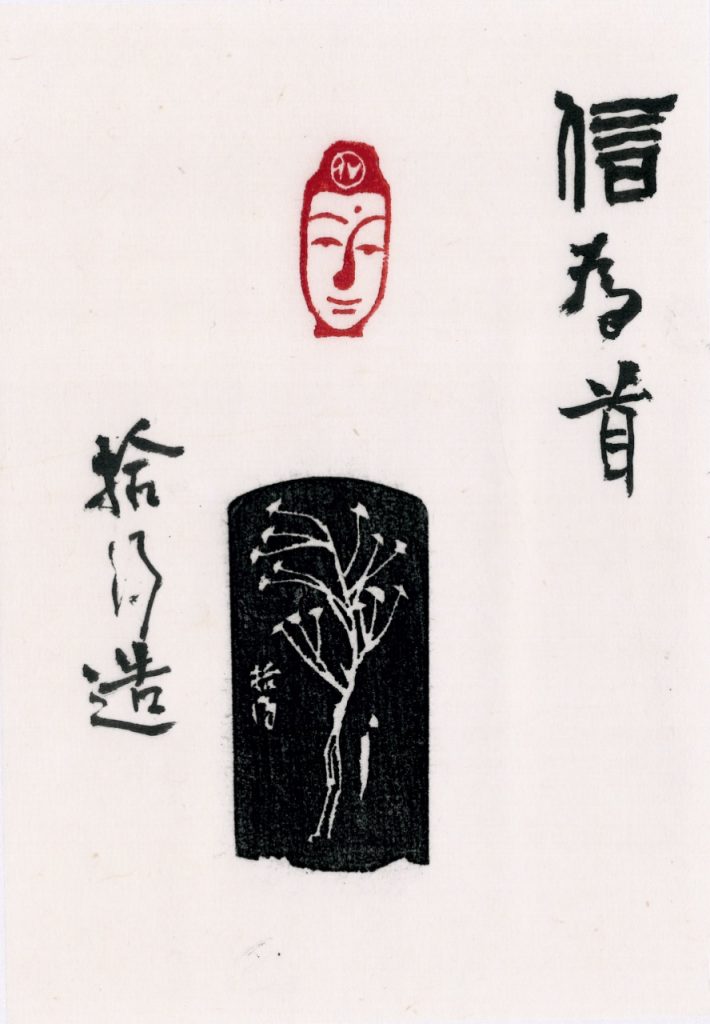 信為首
拾得造
拾得